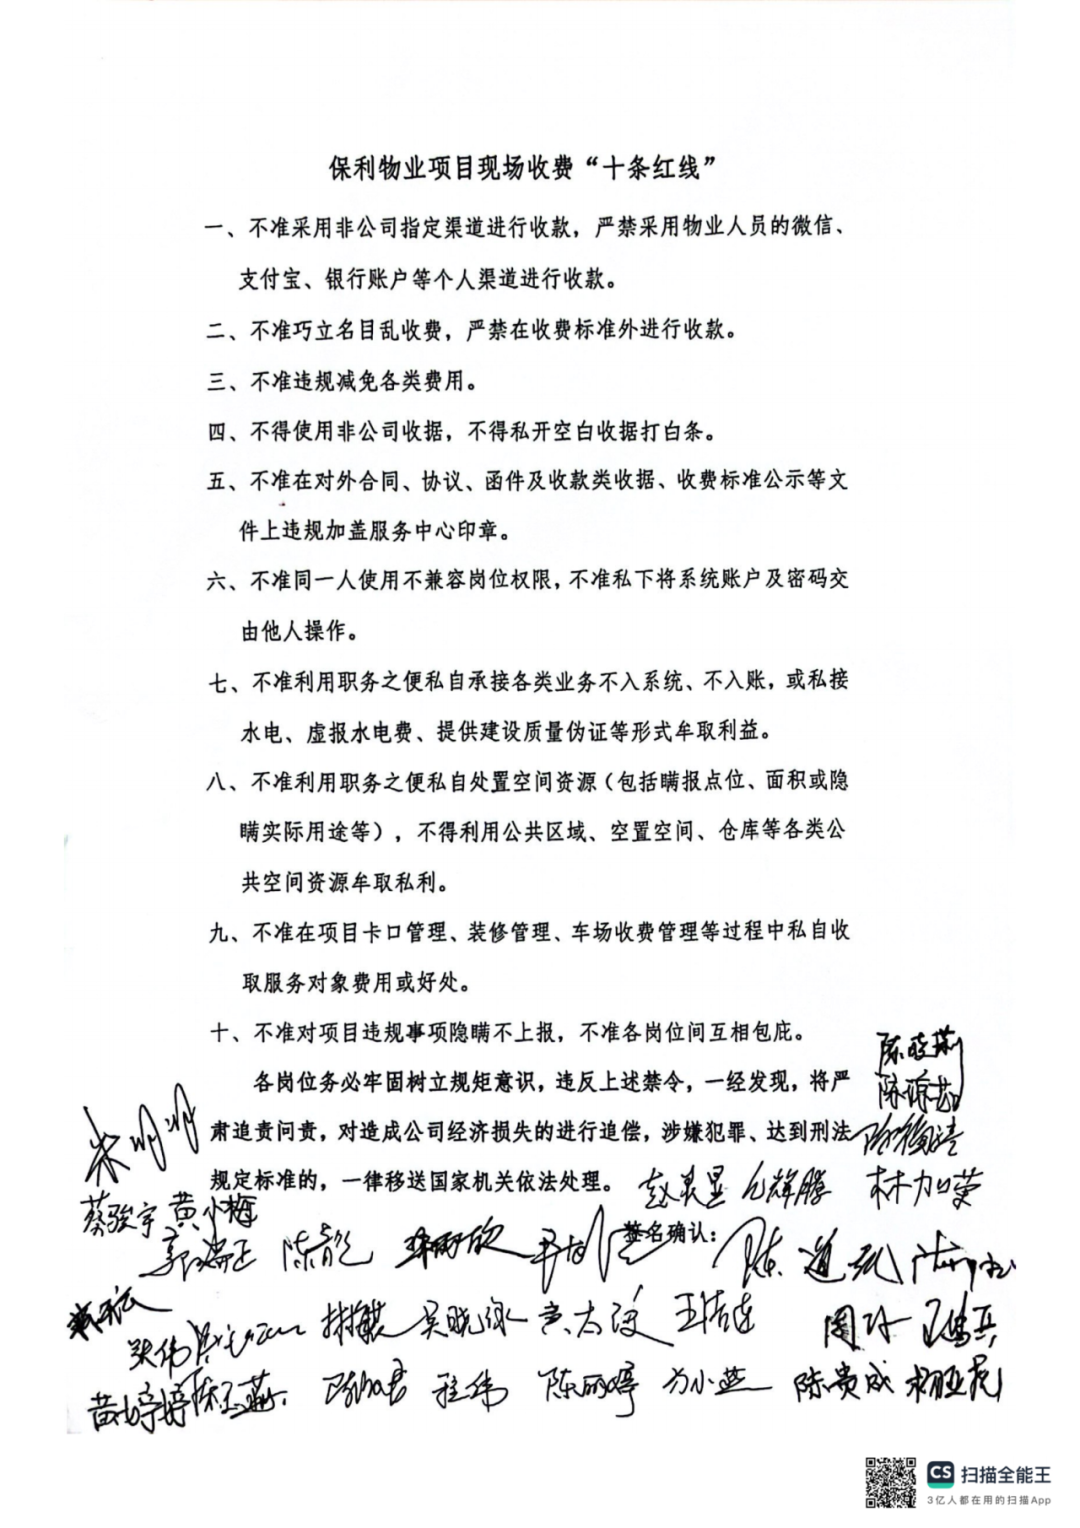 保利物业项目现场收费“十条红线”
一、不准采用非公司指定渠道进行收款，严禁采用物业人员的微信、
支付宝、银行账户等个人渠道进行收款。
二、不准巧立名目乱收费，严禁在收费标准外进行收款。
三、不准违规减免各类费用。
四、不得使用非公司收据，不得私开空白收据打白条。
五、不准在对外合同、协议、函件及收款类收据、收费标准公示等文
件上违规加盖服务中心印章。
六、不准同一人使用不兼容岗位权限，不准私下将系统账户及密码交
由他人操作。
七、不准利用职务之便私自承接各类业务不入系统、不入账，或私接
水电、虚报水电费、提供建设质量伪证等形式牟取利益。
八、不准利用职务之便私自处置空间资源（包括瞒报点位、面积或隐
瞒实际用途等），不得利用公共区域、空置空间、仓库等各类公
共空间资源牟取私利。
九、不准在项目卡口管理、装修管理、车场收费管理等过程中私自收
取服务对象费用或好处。
十、不准对项目违规事项隐瞒不上报，不准各岗位间互相包庇。
各岗位务必牢固树立规矩意识，违反上述禁令，一经发现，将严
肃追责问责，对造成公司经济损失的进行追偿，涉嫌犯罪、达到刑法
规定标准的，一律移送国家机关依法处理。
陈晓莉
朱明明
林加荣
蔡骏宇 黄小梅
签名确认：
陈道斌
张伟 吴晓绿 王洁莲
黄婷婷 陈玉燕 程伟 陈丽婷 方小燕 陈贵成
CS 扫描全能王
3亿人都在用的扫描App